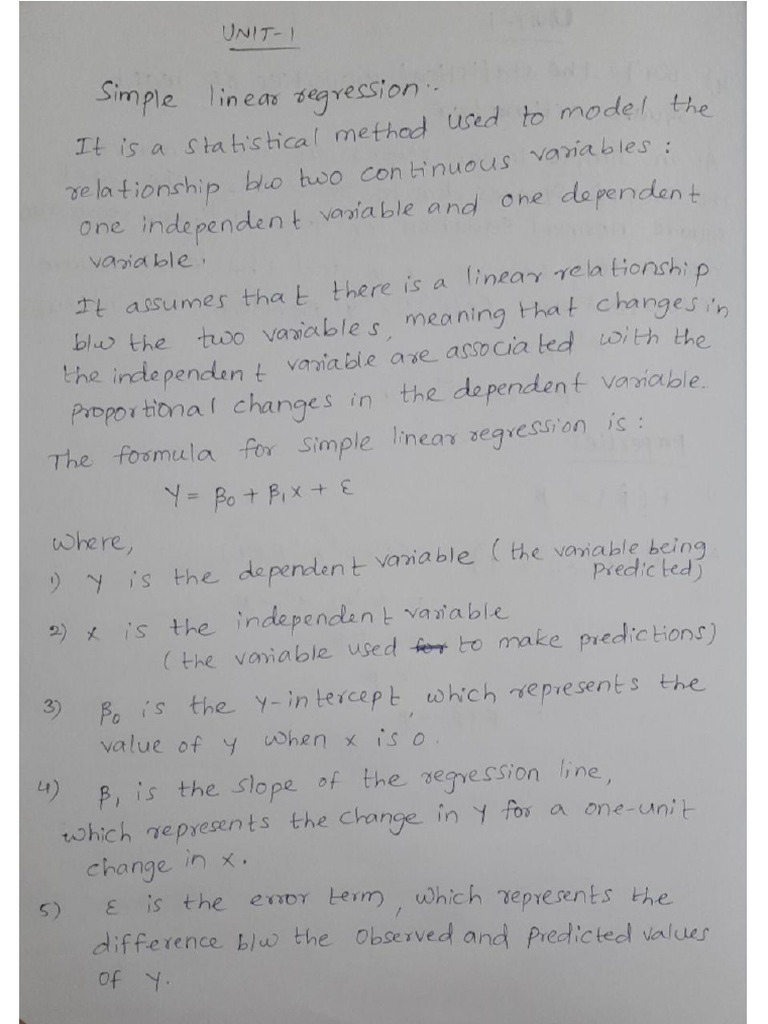 UNIT-1
Simple linear regression:-
It is a statistical method used to model the
relationship b/w two continuous variables :
one independent variable and one dependent
variable.
It assumes that there is a linear relationship
b/w the two variables, meaning that changes in
the independent variable are associated with the
proportional changes in the dependent variable.
The formula for simple linear regression is :
Y = β0 + β1x + ε
where,
1) Y is the dependent variable (the variable being
predicted)
2) x is the independent variable
(the variable used for to make predictions)
3) β0 is the y-intercept, which represents the
value of y when x is 0.
4) β1 is the slope of the regression line,
which represents the change in y for a one-unit
change in x.
5) ε is the error term, which represents the
difference b/w the observed and predicted values
of y.